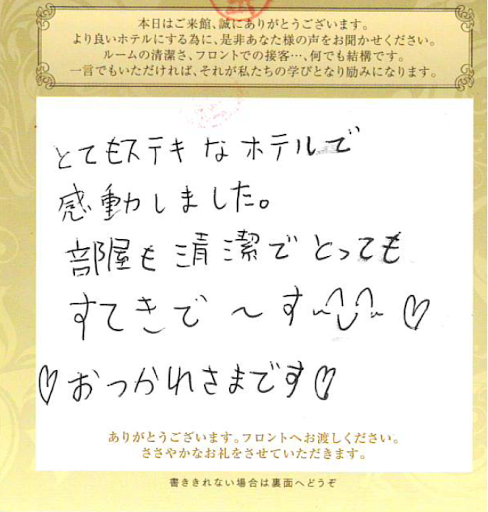 本日はご来館、誠にありがとうございます。
より良いホテルにする為に、是非あなた様の声をお聞かせください。
ルームの清潔さ、フロントでの接客…、何でも結構です。
一言でもいただければ、それが私たちの学びとなり励みになります。
とてもステキなホテルで
感動しました。
部屋も清潔でとっても
すてきで〜す♡
♡おつかれさまです♡
ありがとうございます。フロントへお渡しください。
ささやかなお礼をさせていただきます。
書ききれない場合は裏面へどうぞ